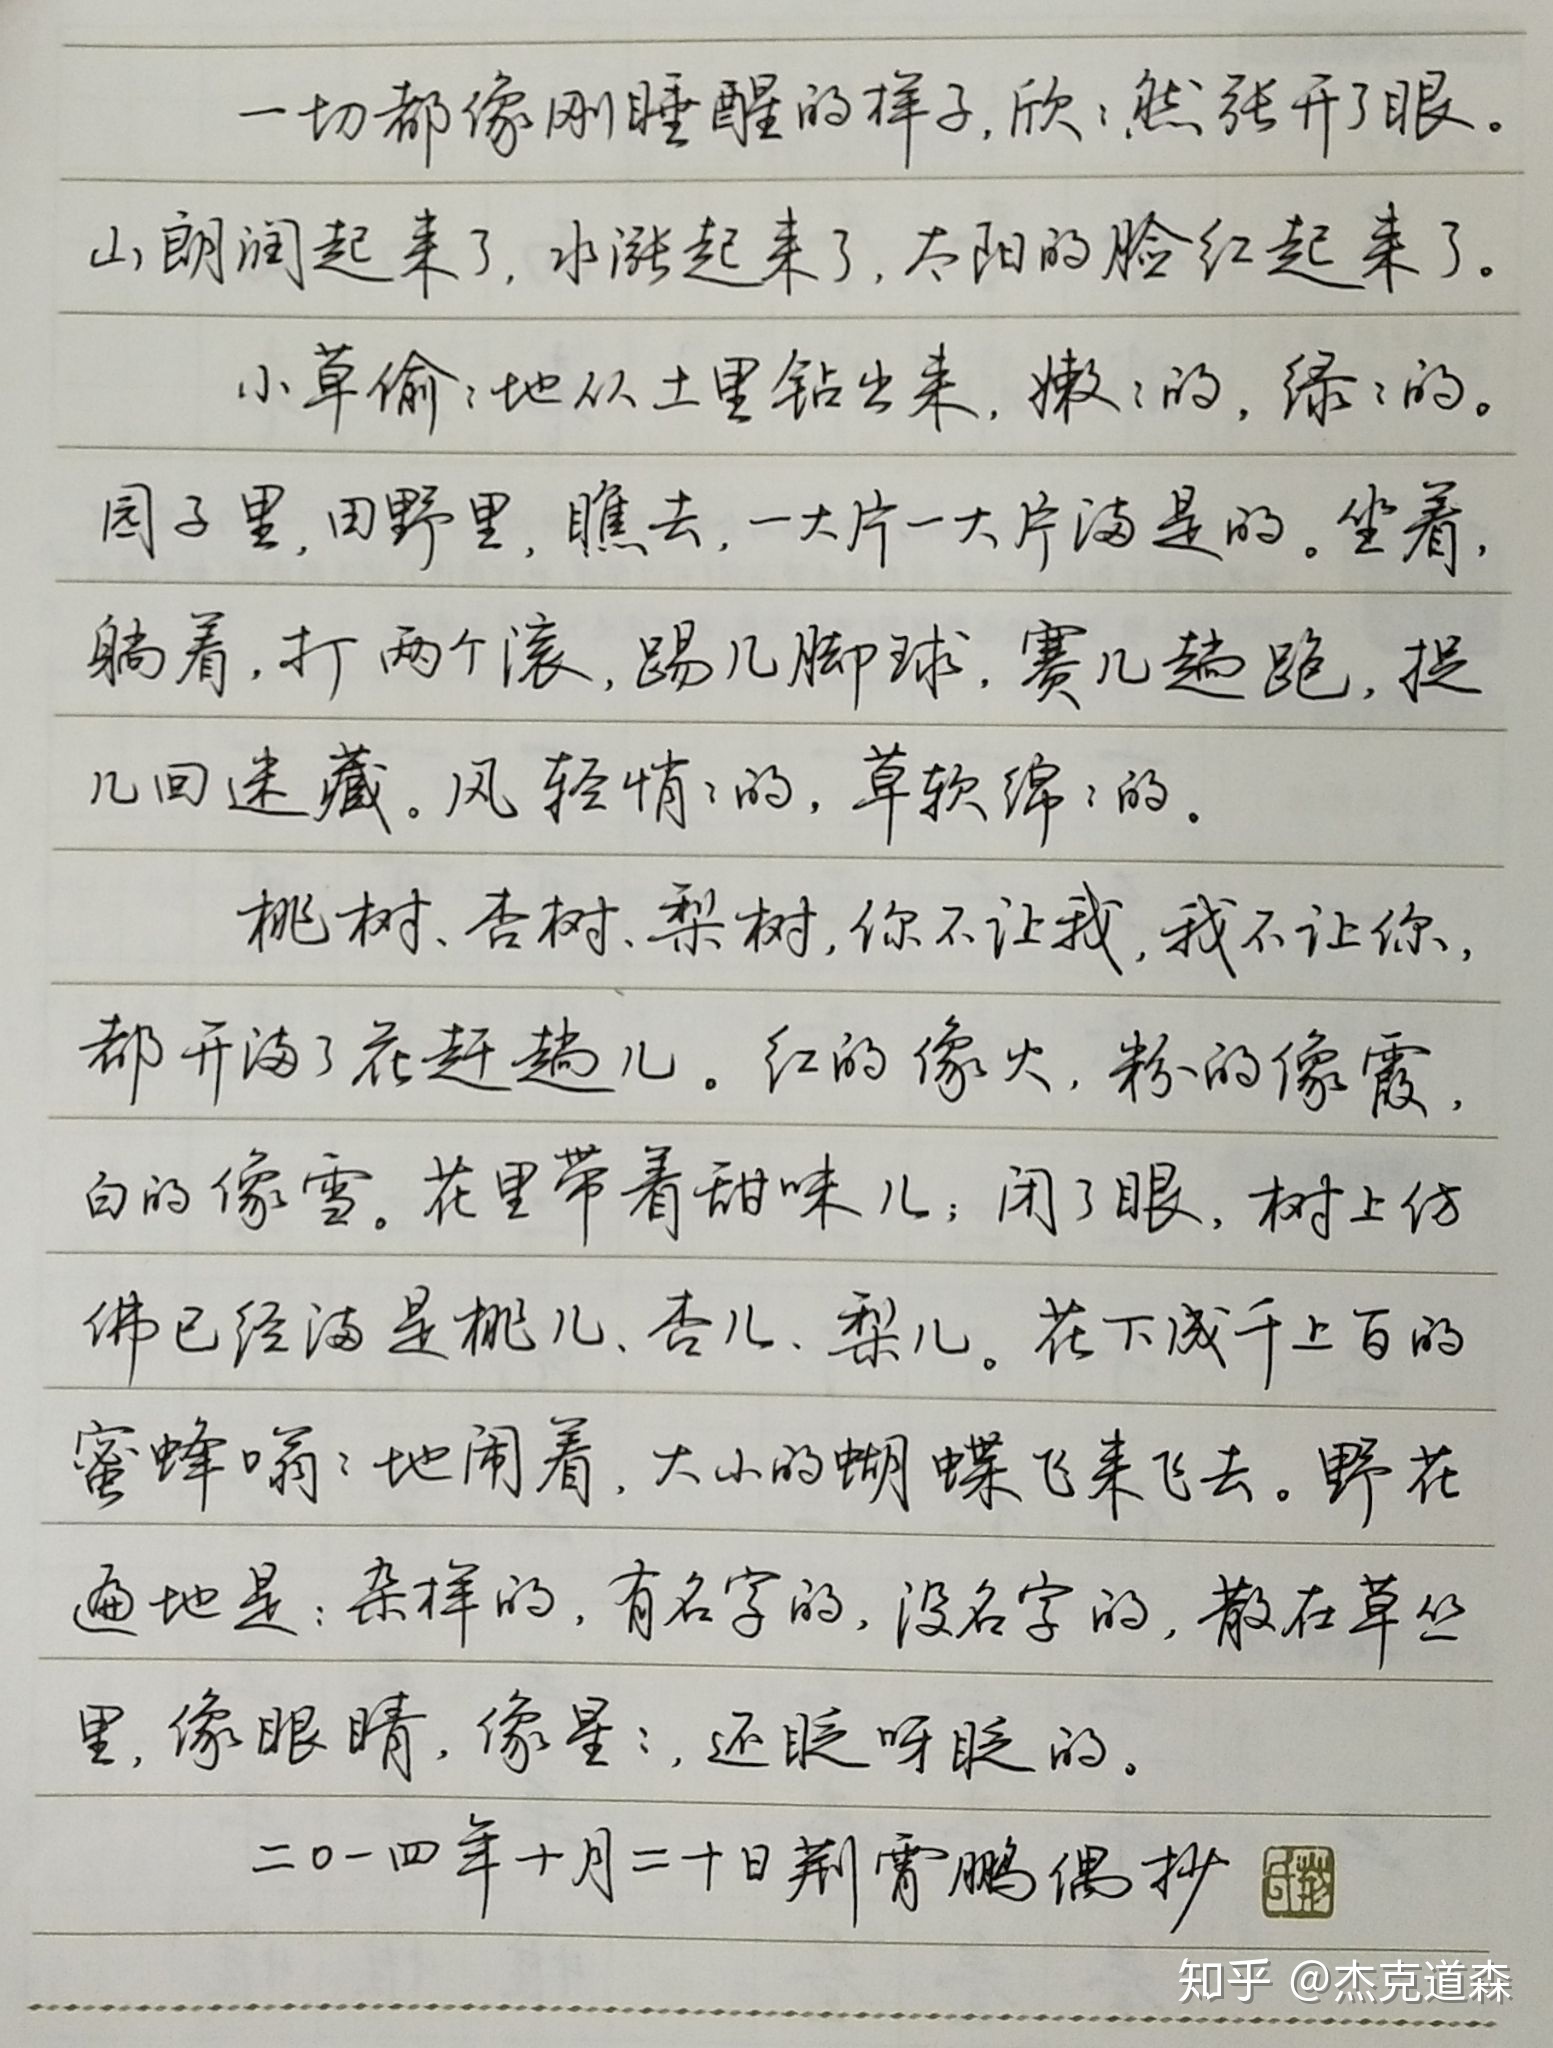 一切都像刚睡醒的样子，欣〻然张开了眼。
山朗润起来了，水涨起来了，太阳的脸红起来了。
小草偷〻地从土里钻出来，嫩〻的，绿〻的。
园子里，田野里，瞧去，一大片一大片满是的。坐着，
躺着，打两个滚，踢几脚球，赛几趟跑，捉
几回迷藏。风轻悄〻的，草软绵〻的。
桃树、杏树、梨树，你不让我，我不让你，
都开满了花赶趟儿。红的像火，粉的像霞，
白的像雪。花里带着甜味儿；闭了眼，树上仿
佛已经满是桃儿、杏儿、梨儿。花下成千上百的
蜜蜂嗡〻地闹着，大小的蝴蝶飞来飞去。野花
遍地是：杂样的，有名字的，没名字的，散在草丛
里，像眼睛，像星〻，还眨呀眨的。
二〇一四年十月二十日荆霄鹏偶抄
知乎 @杰克道森